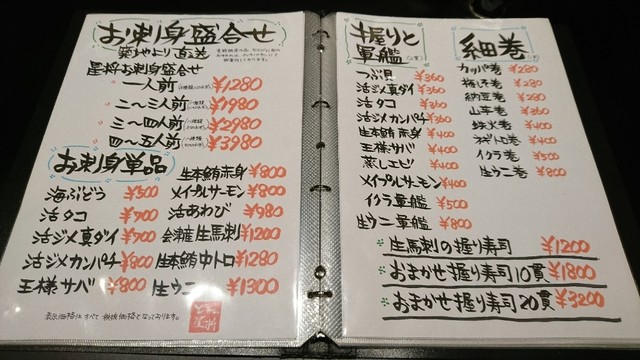 お刺身盛合せ
築地より直送
星将お刺身盛合せ
一人前 ¥1280
二〜三人前 ¥1980
三〜四人前 ¥2980
四〜五人前 ¥3980
お刺身単品
海ぶどう ¥500
活タコ ¥700
活ジメ真ダイ ¥700
活ジメカンパチ ¥800
王様サバ ¥800
生本鮪赤身 ¥800
メイプルサーモン ¥800
活あわび ¥980
会津産生馬刺 ¥1200
生本鮪中トロ ¥1280
生ウニ ¥1300
表示価格はすべて税抜価格となっております。
握りと
軍艦
つぶ貝 ¥360
活ジメ真ダイ ¥360
活タコ ¥360
活ジメカンパチ ¥360
生本鮪赤身 ¥400
王様サバ ¥400
蒸しエビ ¥400
メイプルサーモン ¥400
イクラ軍艦 ¥500
生ウニ軍艦 ¥800
細巻
カッパ巻 ¥280
梅しそ巻 ¥280
納豆巻 ¥280
山芋巻 ¥360
鉄火巻 ¥400
ネギトロ巻 ¥400
イクラ巻 ¥500
生ウニ巻 ¥800
生馬刺の握り寿司 ¥1200
おまかせ握り寿司10貫 ¥1800
おまかせ握り寿司20貫 ¥3200